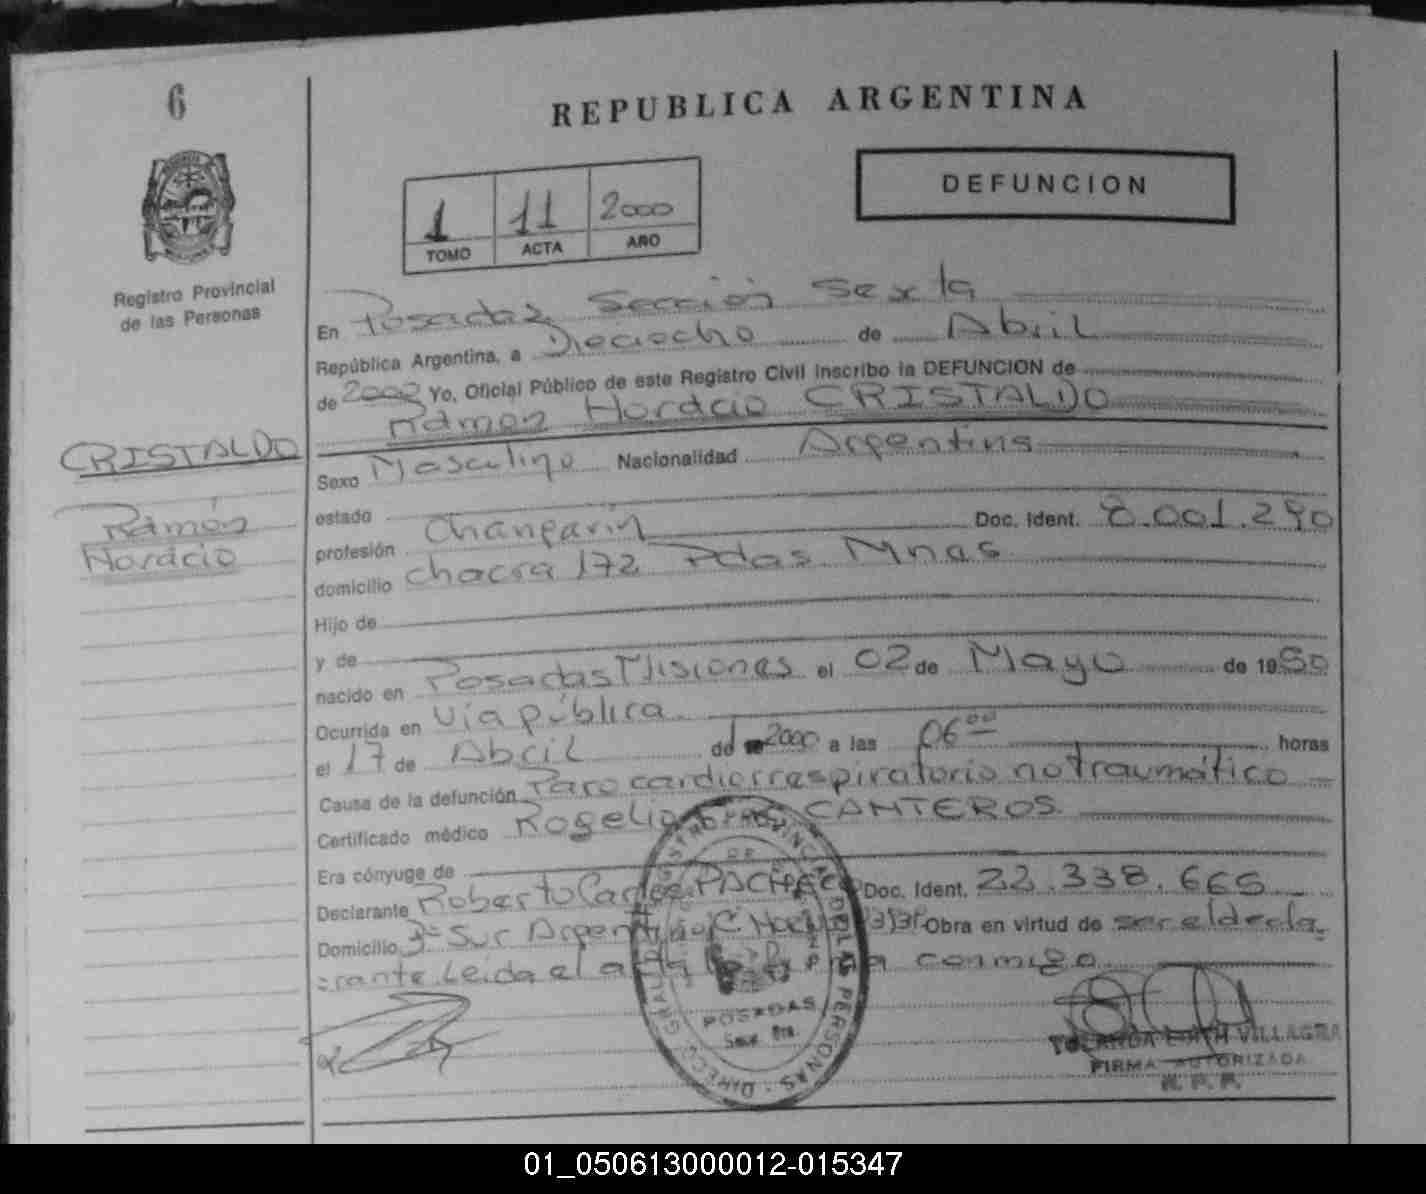 6
REPUBLICA ARGENTINA
DEFUNCION
1 11 2000
TOMO ACTA AÑO
Registro Provincial
de las Personas
En Posadas Sección Sexta
República Argentina, a Dieciocho de Abril
de 2000 Yo, Oficial Público de este Registro Civil inscribo la DEFUNCION de
Ramón Horacio CRISTALDO
CRISTALDO
Ramón
Horacio
Sexo Masculino Nacionalidad Argentina
estado
profesión Changarín Doc. Ident. 8.001.290
domicilio chacra 172 Pdas Mnas
Hijo de
y de
nacido en Posadas Misiones el 02 de Mayo de 1950
Ocurrida en vía pública
el 17 de Abril de 2000 a las 06 00 horas
Causa de la defunción Paro cardiorrespiratorio no traumático
Certificado médico Rogelio CANTEROS
Era cónyuge de
Declarante Roberto Carlos Doc. Ident. 22.338.665
Domicilio Sur Argentino Obra en virtud de ser el decla
rante Leída el conmigo
REGISTRO PROVINCIAL DE LAS PERSONAS
POSADAS
Secc. 6ta.
YOLANDA VILLAGRA
FIRMA AUTORIZADA
R. P. P.
01_050613000012-015347